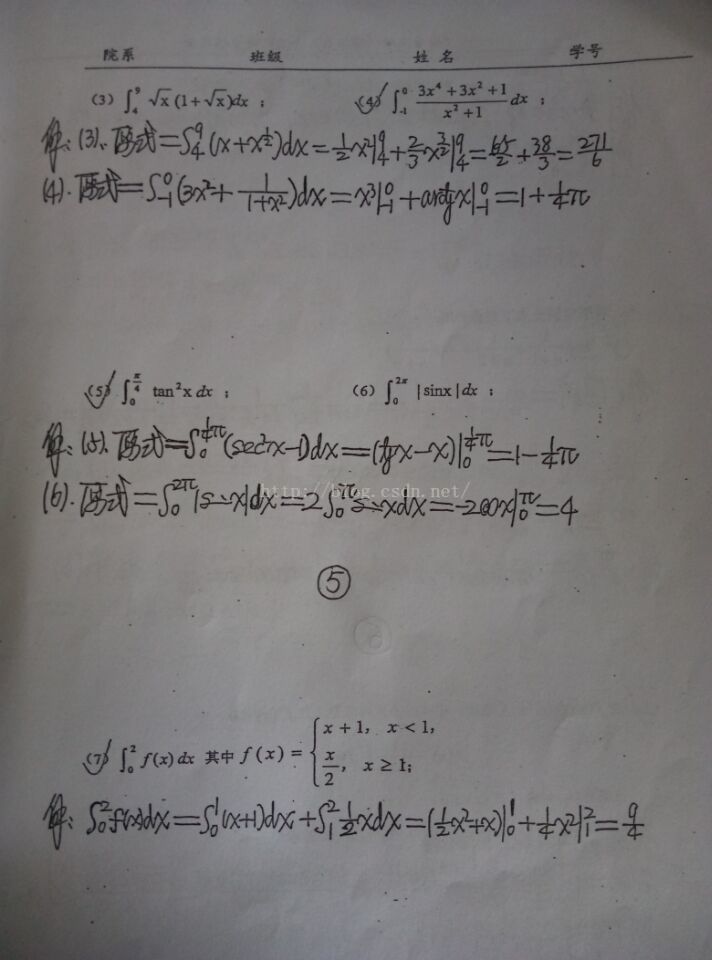 院系 班级 姓名 学号
(3) ∫₄⁹ √x (1+√x)dx ; (4) ∫₋₁⁰ (3x⁴+3x²+1)/(x²+1) dx ;
解: (3). 原式=∫₄⁹(x+x^(1/2))dx=1/2 x²|₄⁹+2/3 x^(3/2)|₄⁹=65/2+38/3=271/6
(4). 原式=∫₋₁⁰(3x²+1/(1+x²))dx=x³|₋₁⁰+arctgx|₋₁⁰=1+1/4π
(5) ∫₀^(π/4) tan²x dx ; (6) ∫₀^(2π) |sinx|dx ;
解: (5). 原式=∫₀^(1/4π)(sec²x-1)dx=(tgx-x)|₀^(1/4π)=1-1/4π
(6). 原式=∫₀^(2π)|sinx|dx=2∫₀^π sinxdx=-2cosx|₀^π=4
http://blog.csdn.net/
⑤
(7) ∫₀² f(x)dx 其中 f(x)={x+1, x<1,
x/2, x≥1;
解: ∫₀²f(x)dx=∫₀¹(x+1)dx+∫₁² 1/2 xdx=(1/2x²+x)|₀¹+1/4x²|₁²=9/4